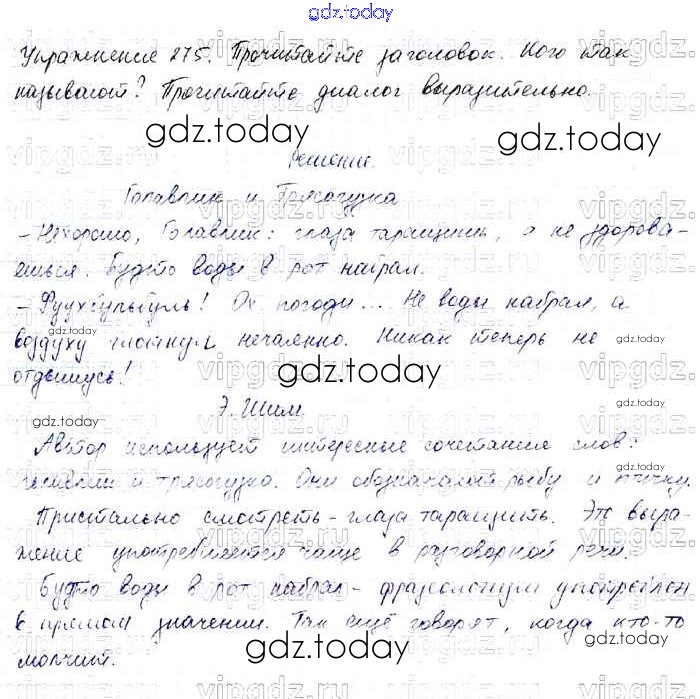 gdz.today
Упражнение 275. Прочитайте заголовок. Кого так
называют? Прочитайте диалог выразительно.
gdz.today gdz.today
Решение.
Голавлик и Трясогузка
– Нехорошо, Голавлик: глаза таращишь, а не здорова-
ешься. Будто воды в рот набрал.
– Фуухбульбуль! Ох погоди... Не воды набрал, а
воздуху глотнул нечаянно. Никак теперь не
отдышусь!
gdz.today
gdz.today
gdz.today
Э. Шим
Автор использует интересные сочетания слов:
голавлик и трясогузка. Они обозначают рыбу и птичку.
Пристально смотреть – глаза таращить. Это выра-
жение употребляется чаще в разговорной речи.
Будто воды в рот набрал – фразеологизм употреблен
в прямом значении. Так ещё говорят, когда кто-то
молчит.
gdz.today
gdz.today
gdz.today
gdz.today
gdz.today
gdz.today